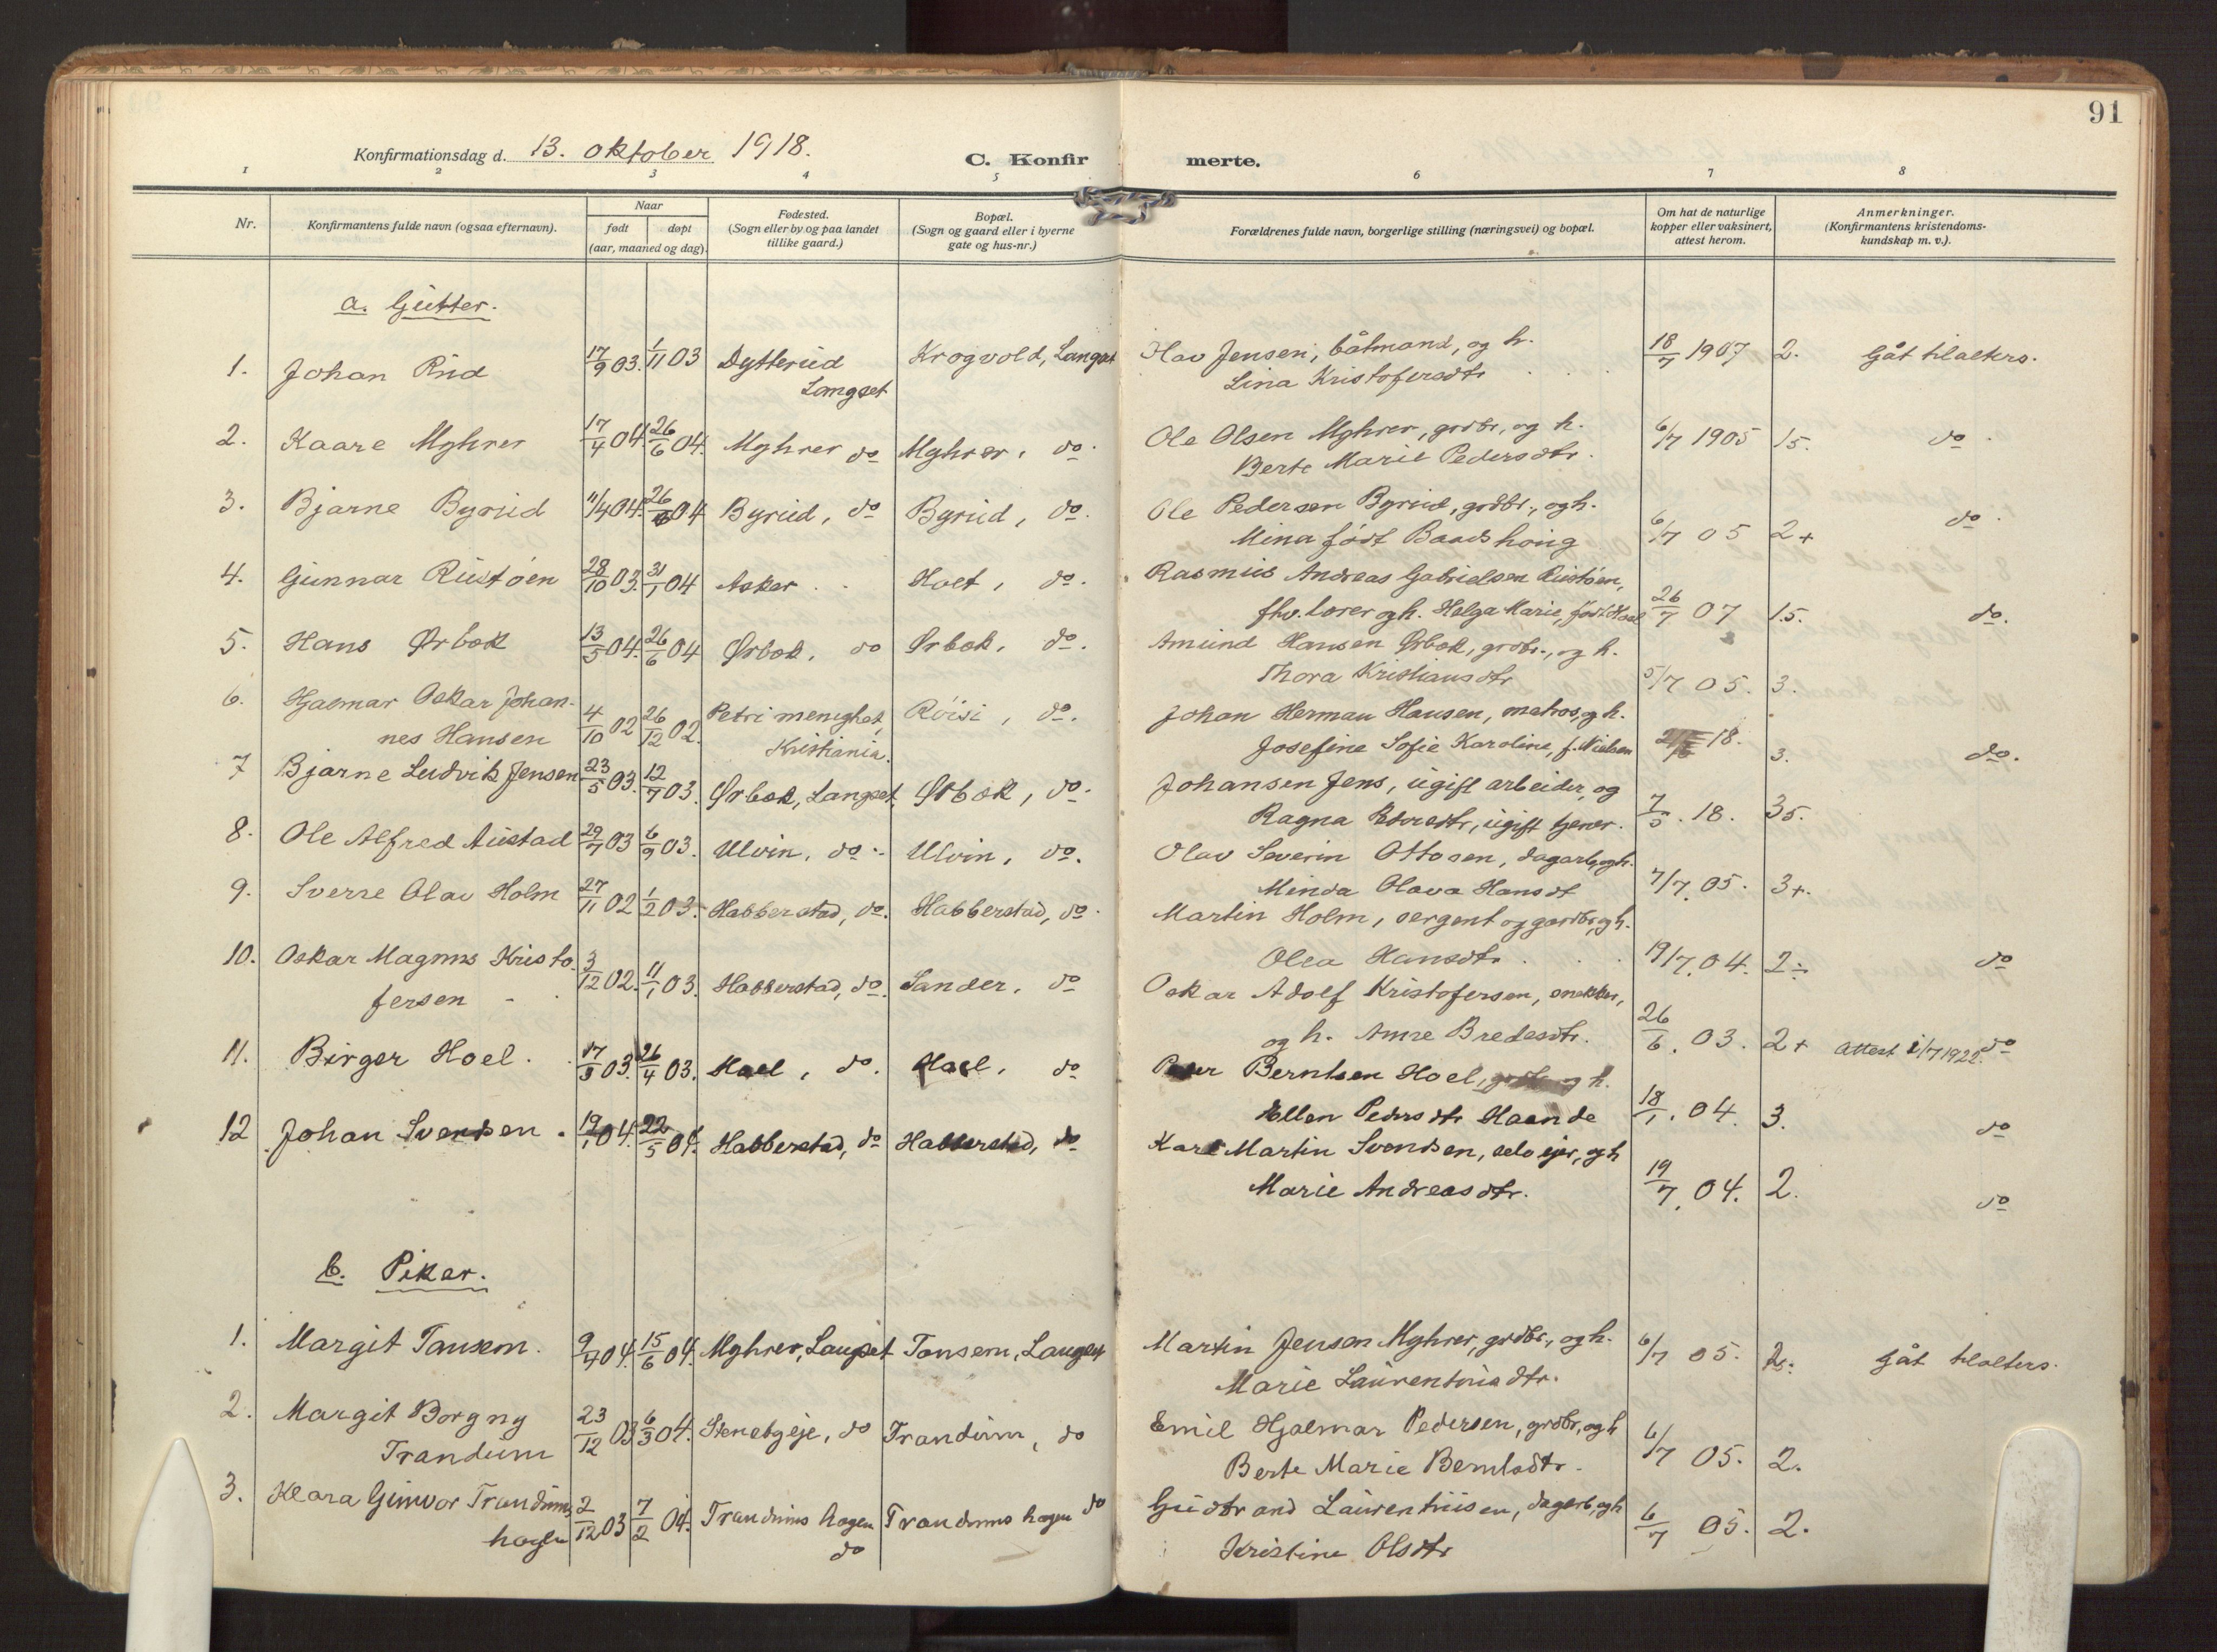 91
Konfirmationsdag d. 13. oktober 1918.
C. Konfirmerte.
1 2 3 4 5 6 7 8
Nr.
Konfirmantens fulde navn (ogsaa efternavn).
Naar
født døpt
(aar, maaned og dag).
Fødested.
(Sogn eller by og paa landet
tillike gaard.)
Bopæl.
(Sogn og gaard eller i byerne
gate og hus-nr.)
Forældrenes fulde navn, borgerlige stilling (næringsvei) og bopæl.
Om hat de naturlige
kopper eller vaksinert,
attest herom.
Anmerkninger.
(Konfirmantens kristendoms-
kundskap m. v.).
a. Gutter.
1. Johan Rud 17/9 03. 1/11 03 Dytterud Krogvold, Langset Olav Jensen, båtmand, og h. 18/7 1907 2. Gåt tilalters.
Langset Lina Kristofersdtr
2. Kaare Myhrer 17/4 04. 26/6 04. Myhrer do Myhrer, do. Ole Olsen Myhrer, grdbr., og h. 6/7 1905 15. do.
Berte Marie Pedersdtr.
3. Bjarne Byrud 11/4 04. 26/6 04 Byrud, do Byrud, do. Ole Pedersen Byrud, grdbr., og h. do.
Mina født Baadshoug 6/7 05 2+
4. Gunnar Rustøen 28/10 03. 31/1 04 Asker Hoel, do. Rasmus Andreas Gabrielsen Rustøen,
fhv. lærer og h. Helga Marie, født Hoel 26/7 07 1.5. do.
5. Hans Ørbæk 13/5 04. 26/6 04 Ørbæk, do Ørbæk, do. Amund Hansen Ørbæk, grdbr., og h.
Thora Kristiansdtr 5/7 05. 3.
6. Hjalmar Oskar Johan- 4/10 02 26/12 02. Petri menighet, Røisi, do. Johan Herman Hansen, matros, og h.
nes Hansen Kristiania. Josefine Sofie Karoline, f. Nielsen 18. 3. do.
7 Bjarne Ludvik Jensen 23/5 03. 12/7 03. Ørbæk, Langset Ørbæk, do. Johansen Jens, ugift arbeider, og
Ragna, ugift tjener. 7/5. 18. 35.
8. Ole Alfred Austad 29/7 03 6/9 03. Ulvin, do. Ulvin, do. Olav Severin Ottosen, dagarb, og h.
Minda Olava Hansdt 7/7. 05. 3+.
9. Sverre Olav Holm 27/11 02 1/2 03. Habberstad, do. Habberstad, do. Martin Holm, sergent og gardbr, og h.
Olea Hansdtr. 19/7. 04. 2÷ do
10. Oskar Magnus Kristo- 3/12 02. 11/1 03. Habberstad, do. Sander, do Oskar Adolf Kristofersen, snekker,
fersen og h. Anne Bredesdtr. 26/6. 03. 2+ Attest 1/7 1922. do
11. Birger Hoel. 17/3 03. 26/4 03. Hoel, do. Hoel, do Peder Berntsen Hoel, grdbr. og h.
Ellen Pedersdtr Haande 18/1. 04. 3. do
12 Johan Svendsen. 19/1 04. 22/5 04. Habberstad, do Habberstad, do Karl Martin Svendsen, selveier, og h
Marie Andreasdtr. 19/7. 04. 2. do
b. Piker.
1. Margit Tansem. 9/4 04. 15/6 04. Myhrer, Langset Tansem, Langset Martin Jensen Myhrer, grdbr., og h. 6/7 05. 2. Gåt tilalters.
Marie Laurentiusdtr.
2. Margit Borgny 23/12 03 6/3 04. Stensbyeje, do Trandum, do Emil Hjalmar Pedersen, grdbr, og h
Trandum Berte Marie Berntsdtr. 6/7 05. 2.
3. Klara Gunvor Trandums- 2/12 03 7/2 04. Trandums hagen Trandums hagen do Gudbrand Laurentiusen, dagarb, og h
hagen do Kristine Olsdtr 6/7 05. 2.